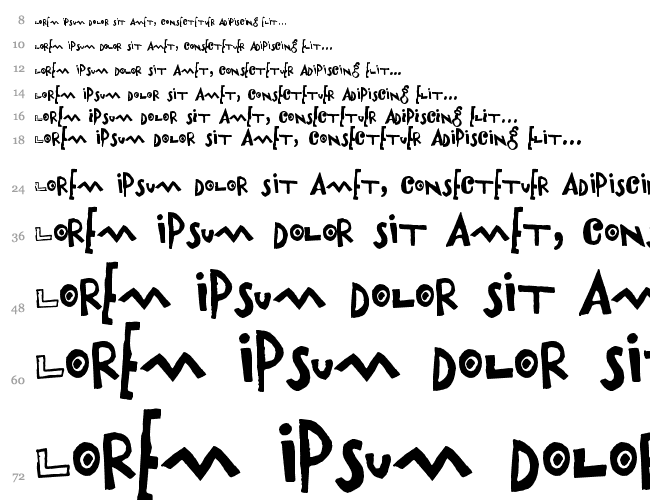 8 Lorem ipsum dolor sit amet, consectetur adipiscing elit...
10 Lorem ipsum dolor sit amet, consectetur adipiscing elit...
12 Lorem ipsum dolor sit amet, consectetur adipiscing elit...
14 Lorem ipsum dolor sit amet, consectetur adipiscing elit...
16 Lorem ipsum dolor sit amet, consectetur adipiscing elit...
18 Lorem ipsum dolor sit amet, consectetur adipiscing elit...
24 Lorem ipsum dolor sit amet, consectetur adipiscin
36 Lorem ipsum dolor sit amet, cons
48 Lorem ipsum dolor sit am
60 Lorem ipsum dolor si
72 Lorem ipsum dolor